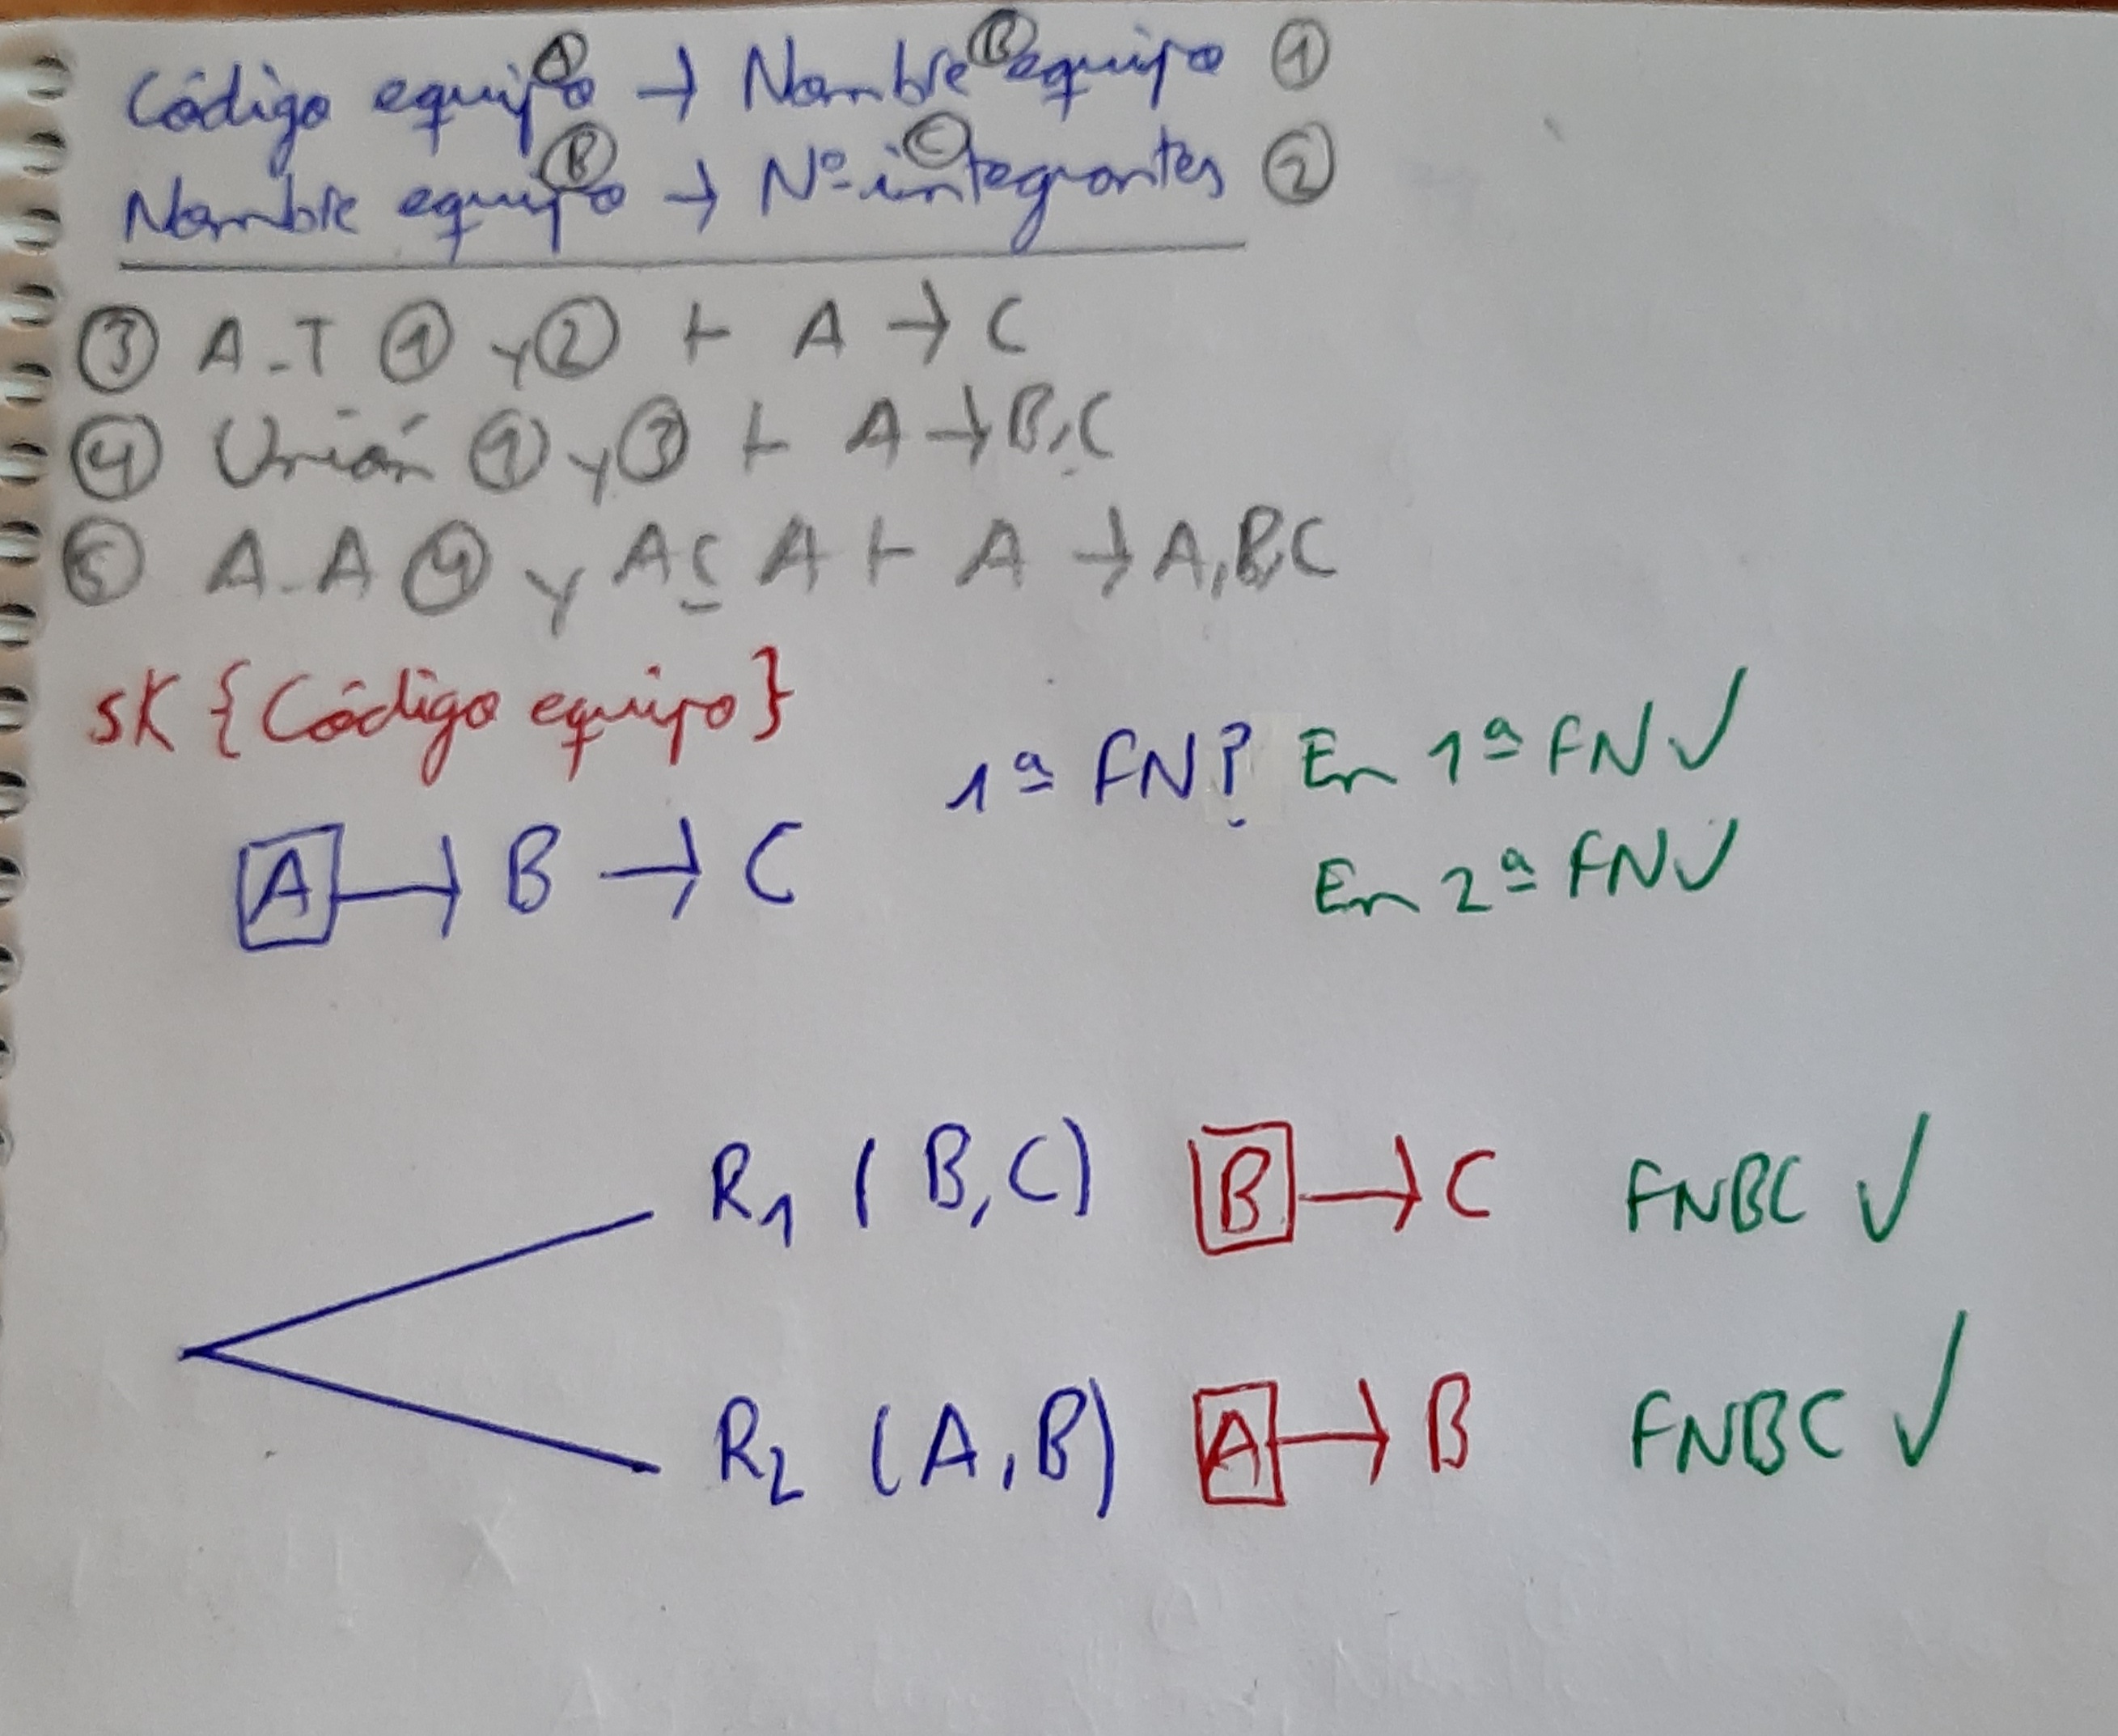 Código equipo Ⓐ → Nombre equipo Ⓑ ①
Nombre equipo Ⓑ → Nº integrantes Ⓒ ②
③ A.T ① y ② ⊢ A → C
④ Unión ① y ③ ⊢ A → B,C
⑤ A.A ④ y A ⊆ A ⊢ A → A,B,C
SK {Código equipo}
1ª FN? En 1ª FN ✓
En 2ª FN ✓
A → B → C
R1 (B,C) B → C FNBC ✓
R2 (A,B) A → B FNBC ✓